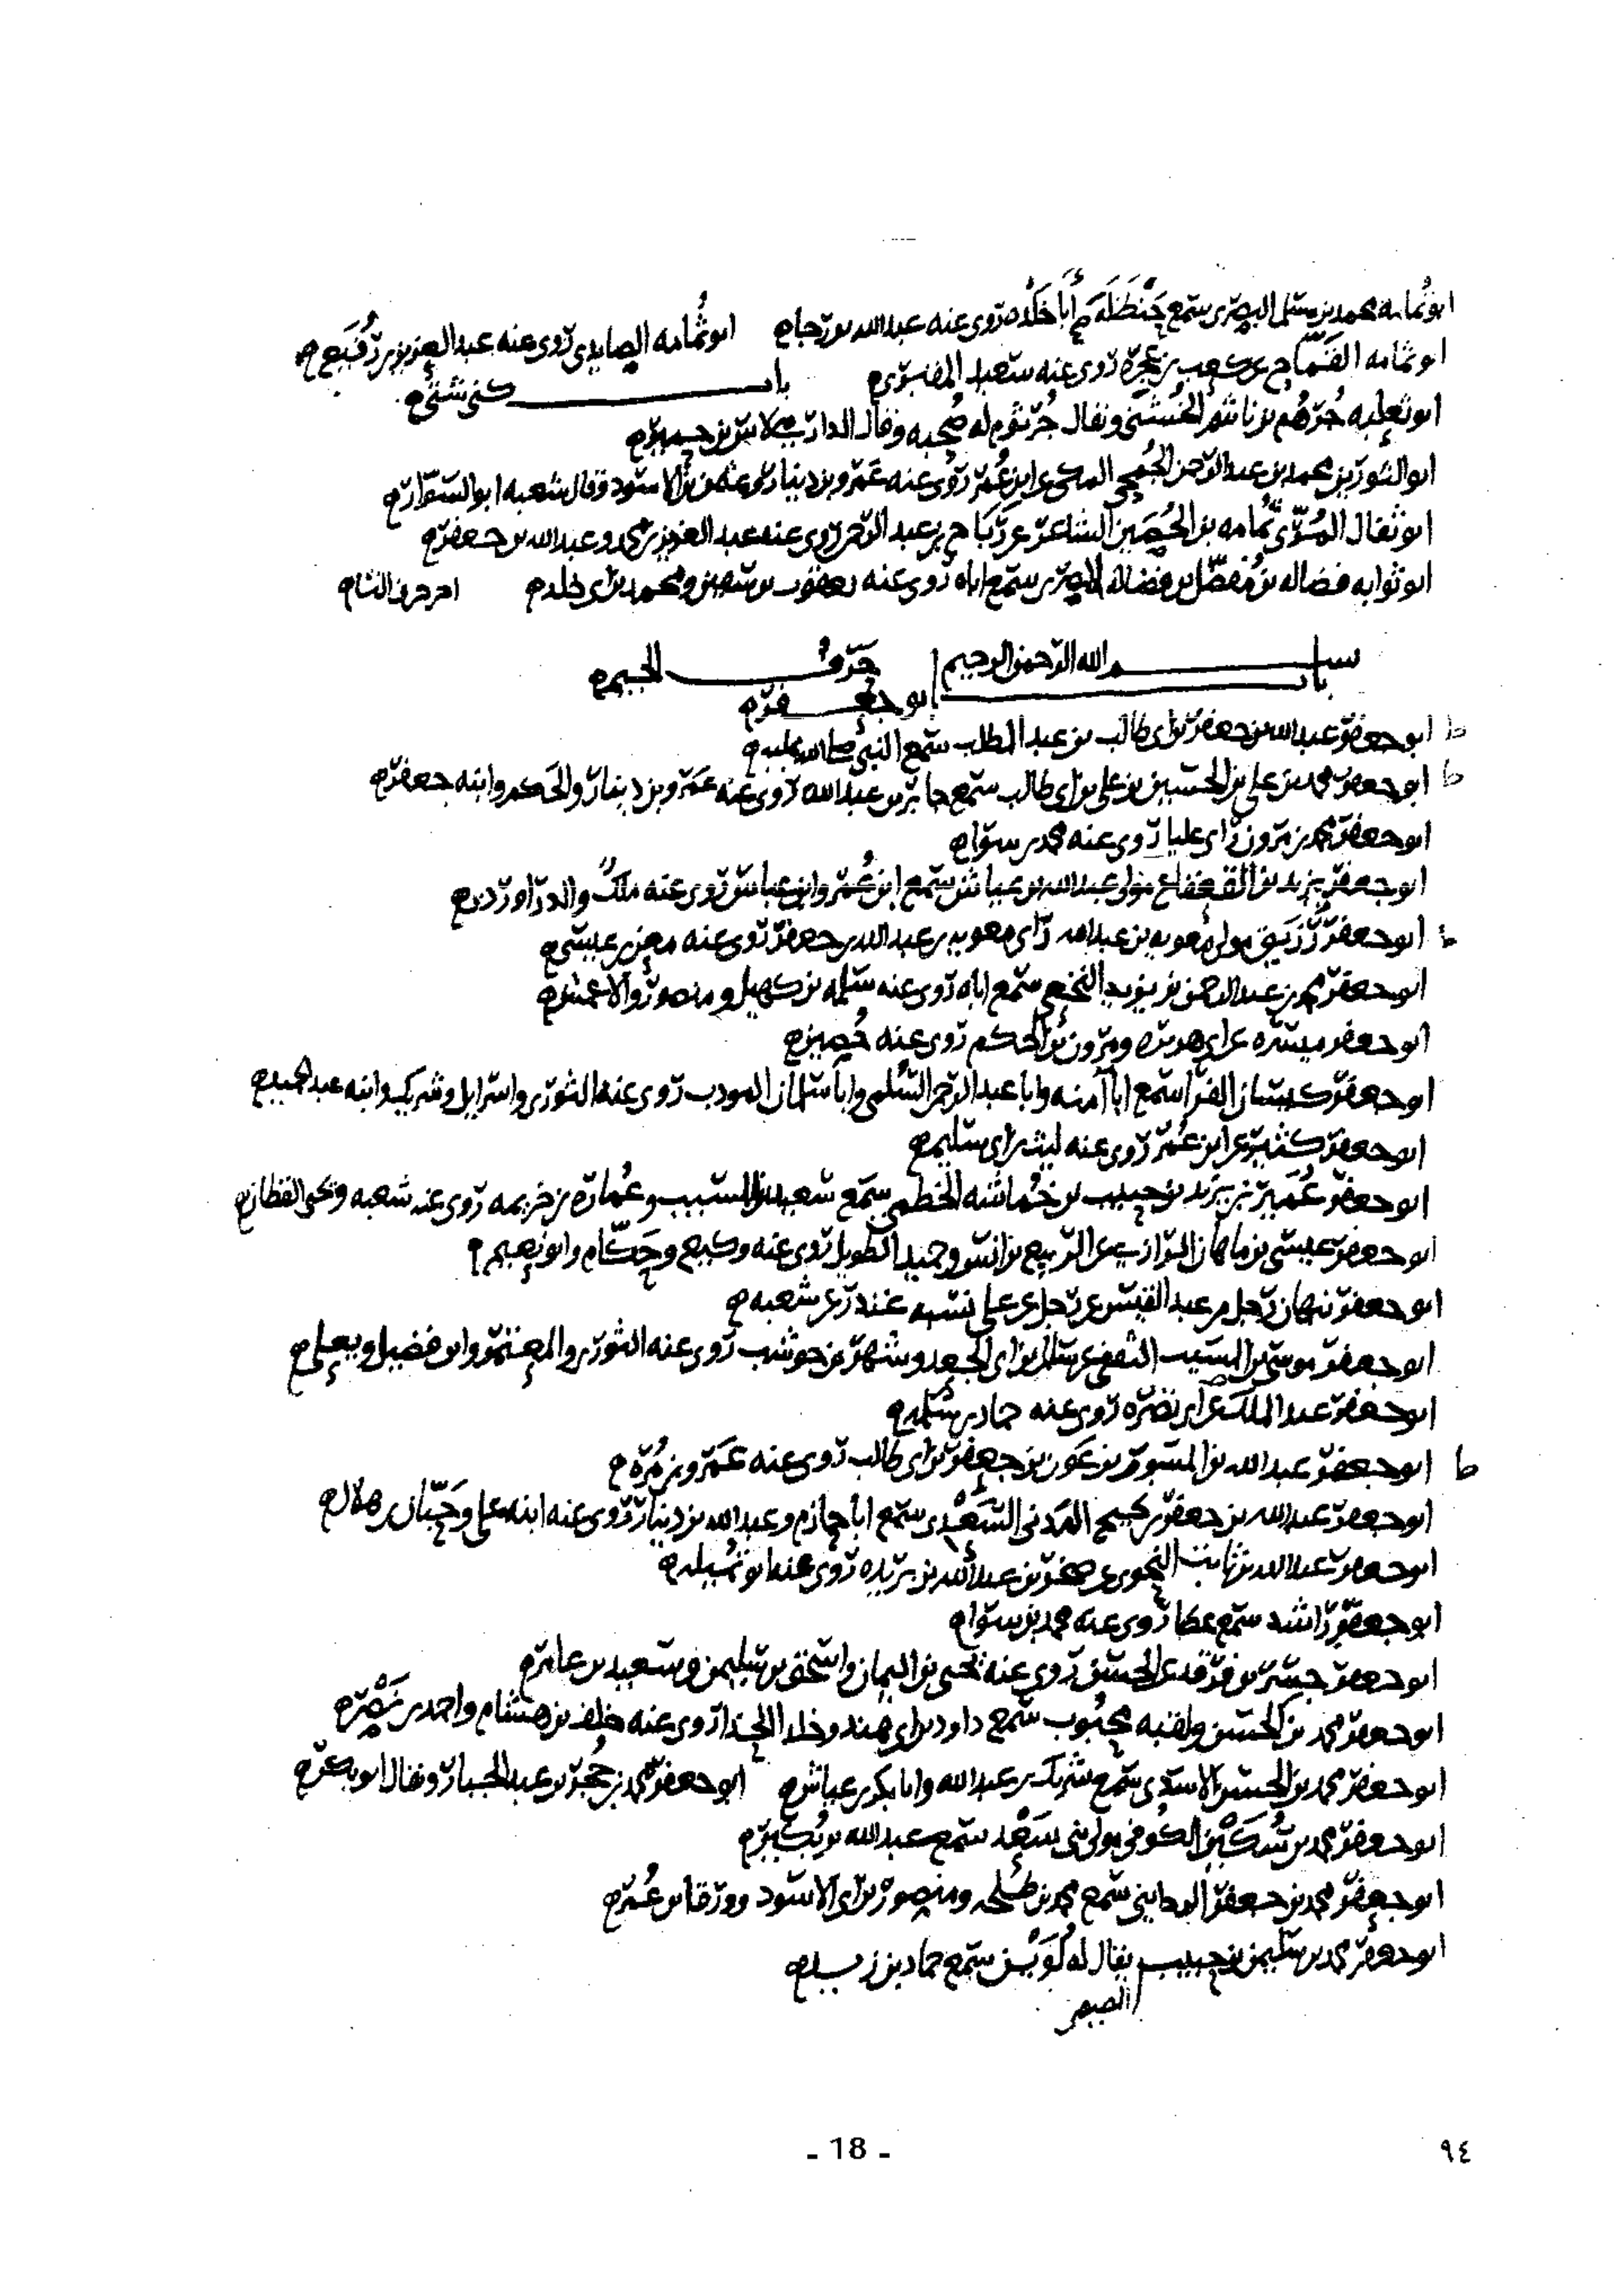 ابو ثمامه محمد بن مسلم البصرى سمع حنظلة أبا خلدة روى عنه عبد الله بن رجا ابو ثمامه الصايدى روى عنه عبد العزيز بن رفيع
ابو ثمامه القماح عن كعب بن عجره روى عنه سعيد المقبرى باب كنى شتى
ابو ثعلبه جرهم بن ناشم الخشنى ويقال جرثوم له صحبه وقال لاشر بن حمير
ابو الثورين محمد بن عبد الرحمن الجمحى المكى عن ابن عمر روى عنه عمرو بن دينار وعثمن بن الاسود وقال شعبه ابو السوار
ابو ثفال المرى ثمامه بن الحصين الشاعر عن رباح بن عبد الرحمن روى عنه عبد العزيز بن محمد وعبد الله بن جعفر
ابو ثوابه فضاله بن مفضل بن فضاله المصرى سمع اباه روى عنه يعقوب بن سفين ومحمد بن اى خلد اخر حرف الثا
بسم الله الرحمن الرحيم حرف الجيم
باب ابو جعفر
ابو جعفر عبد الله بن جعفر بن اى طالب بن عبد المطلب سمع النبى صلى الله عليه
ط ابو جعفر محمد بن على بن الحسين بن على بن اى طالب سمع جابر بن عبد الله روى عنه عمرو بن دينار والحكم وابنه جعفر
ابو جعفر محمد بن مرون راى عليا روى عنه محمد بن سوا
ابو جعفر يزيد بن القعقاع مولى عبد الله بن عياش سمع ابن عمر وابن عباس روى عنه ملك والدراوردى
ابو جعفر رزيق مولى معويه بن عبد الله راى معويه بن عبد الله بن جعفر روى عنه معن بن عيسى
ابو جعفر محمد بن عبد الرحمن بن يزيد النخعى سمع اباه روى عنه سلمه بن كهيل ومنصور والاعمش
ابو جعفر ميسره عن اى هريره ومرون بن الحكم روى عنه حصين
ابو جعفر كيسان الفرا سمع ابا آمنه وابا عبد الرحمن السلمى وابا سلمان المودب روى عنه الثورى واسرايل وشريك وابنه عبد الحميد
ابو جعفر كثير عن ابن عمر روى عنه ليث بن اى سليم
ابو جعفر عمير بن يزيد بن حبيب بن خماشه الخطمى سمع سعيد بن المسيب وعماره بن خزيمه روى عنه شعبه ويحيى القطان
ابو جعفر عيسى بن ماهان الرازى عن الربيع بن انس وحميد الطويل روى عنه وكيع وحكام وابو نعيم
ابو جعفر نبهان رجل من عبد القيس عن رجل عن على نسبه غندر عن شعبه
ابو جعفر موسى بن المسيب الثقفى عن سالم بن اى الجعد وشهر بن حوشب روى عنه الثورى والمعتمر وابن فضيل ويعلى
ابو جعفر عبد الملك عن اى نضره روى عنه حماد بن سلمه
ط ابو جعفر عبد الله بن المسور بن عون بن جعفر بن اى طالب روى عنه عمرو بن مره
ابو جعفر عبد الله بن جعفر بن نجيح المدنى السعدى سمع ابا حازم وعبد الله بن دينار روى عنه ابنه على وحبان بن هلال
ابو جعفر عبد الله بن ثابت النحوى عن صخر بن عبد الله بن بريده روى عنه ابو تميله
ابو جعفر راشد سمع عطا روى عنه محمد بن سوا
ابو جعفر جسر بن فرقد عن الحسن روى عنه يحيى بن اليمان واسحق بن سليمن وسعيد بن عامر
ابو جعفر محمد بن الحسن ولقبه محبوب سمع داود بن اى هند وخلد الحذا روى عنه خلف بن هشام واحمد بن نصر
ابو جعفر محمد بن الحسن الاسدى سمع شريك بن عبد الله وابا بكر بن عياش ابو جعفر محمد بن حجر بن عبد الجبار ويقال ابو
ابو جعفر محمد بن سكين الكوفى مولى بنى سعد سمع عبد الله بن بكير
ابو جعفر محمد بن جعفر المداينى سمع محمد بن طلحه ومنصور بن اى الاسود وورقا بن عمر
ابو جعفر محمد بن سليمن بن حبيب يقال له لوين سمع حماد بن زيد
- 18 -
٩٤